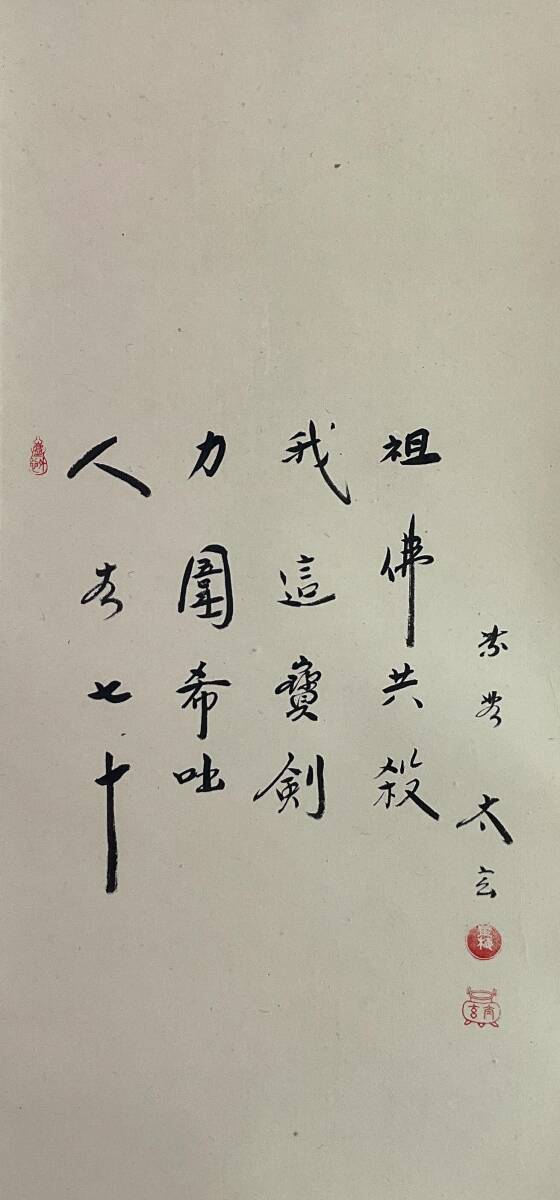 人七十
力圍希咄
我這寶剣
祖佛共殺
紫野 太玄